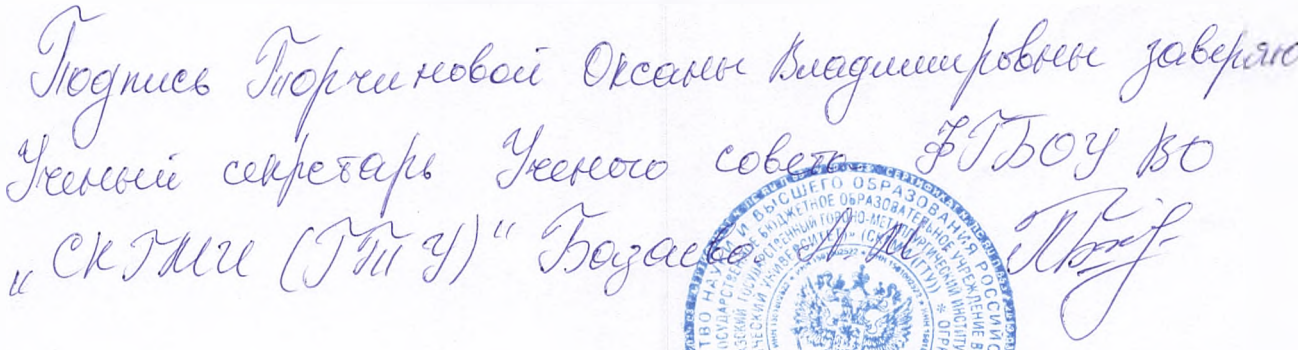 Подпись Торчиновой Оксаны Владимировны заверяю
Ученый секретарь Ученого совета ФГБОУ ВО
„СКГМИ (ГТУ)“ Базаева Л М
ВЫСШЕГО ОБРАЗОВАНИЯ РОССИЙС
БЮДЖЕТНОЕ ОБРАЗОВАТЕЛЬНОЕ УЧРЕЖДЕНИЕ В
ГОСУДАРСТВЕННЫЙ ГОРНО-МЕТАЛЛУРГИЧЕСКИЙ ИНСТИТУ